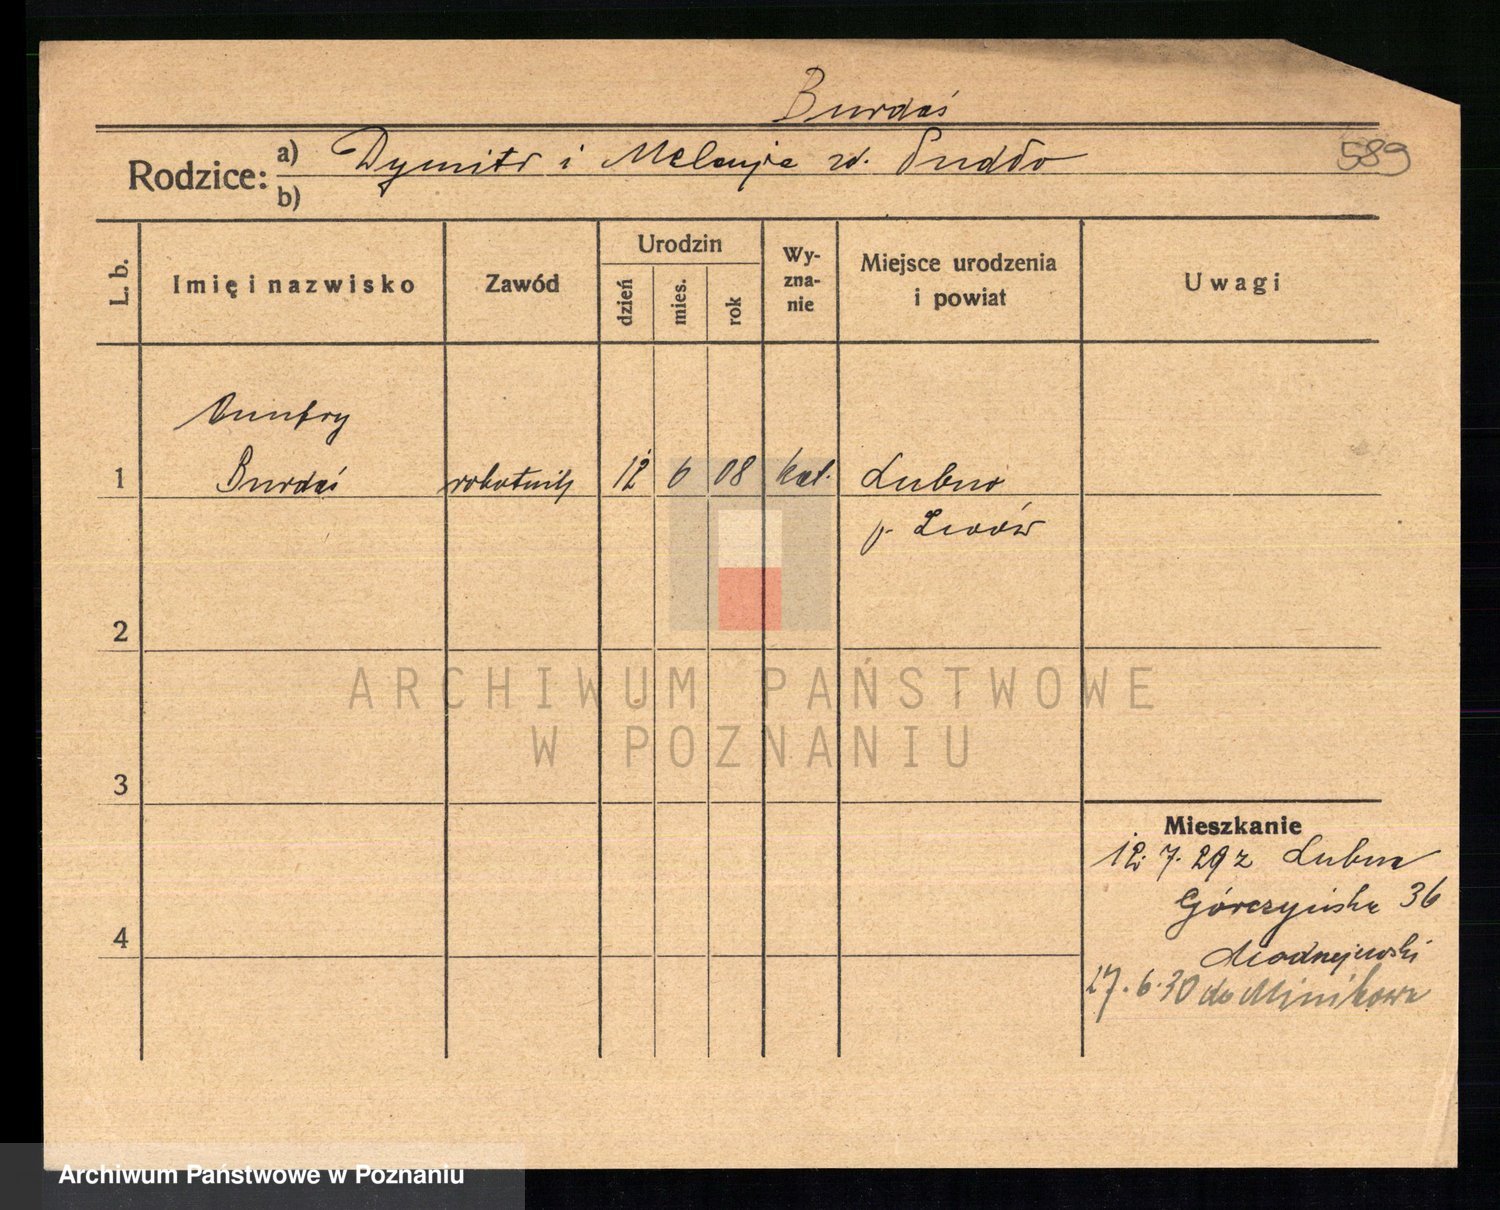 Burdaś
Rodzice: a) Dymitr i Melanja zd. Pudło
b)
589
L. b. Imię i nazwisko Zawód Urodzin dzień mies. rok Wyznanie Miejsce urodzenia i powiat Uwagi
Onufry
1 Burdaś robotnik 12 6 08 kat. Lubno
p. Lwów
2
ARCHIWUM PAŃSTWOWE
W POZNANIU
3
Mieszkanie
12. 7. 29 z Lubna
Górczyńska 36
4
Modrzejewski
27. 6. 30 do Minikowa
Archiwum Państwowe w Poznaniu